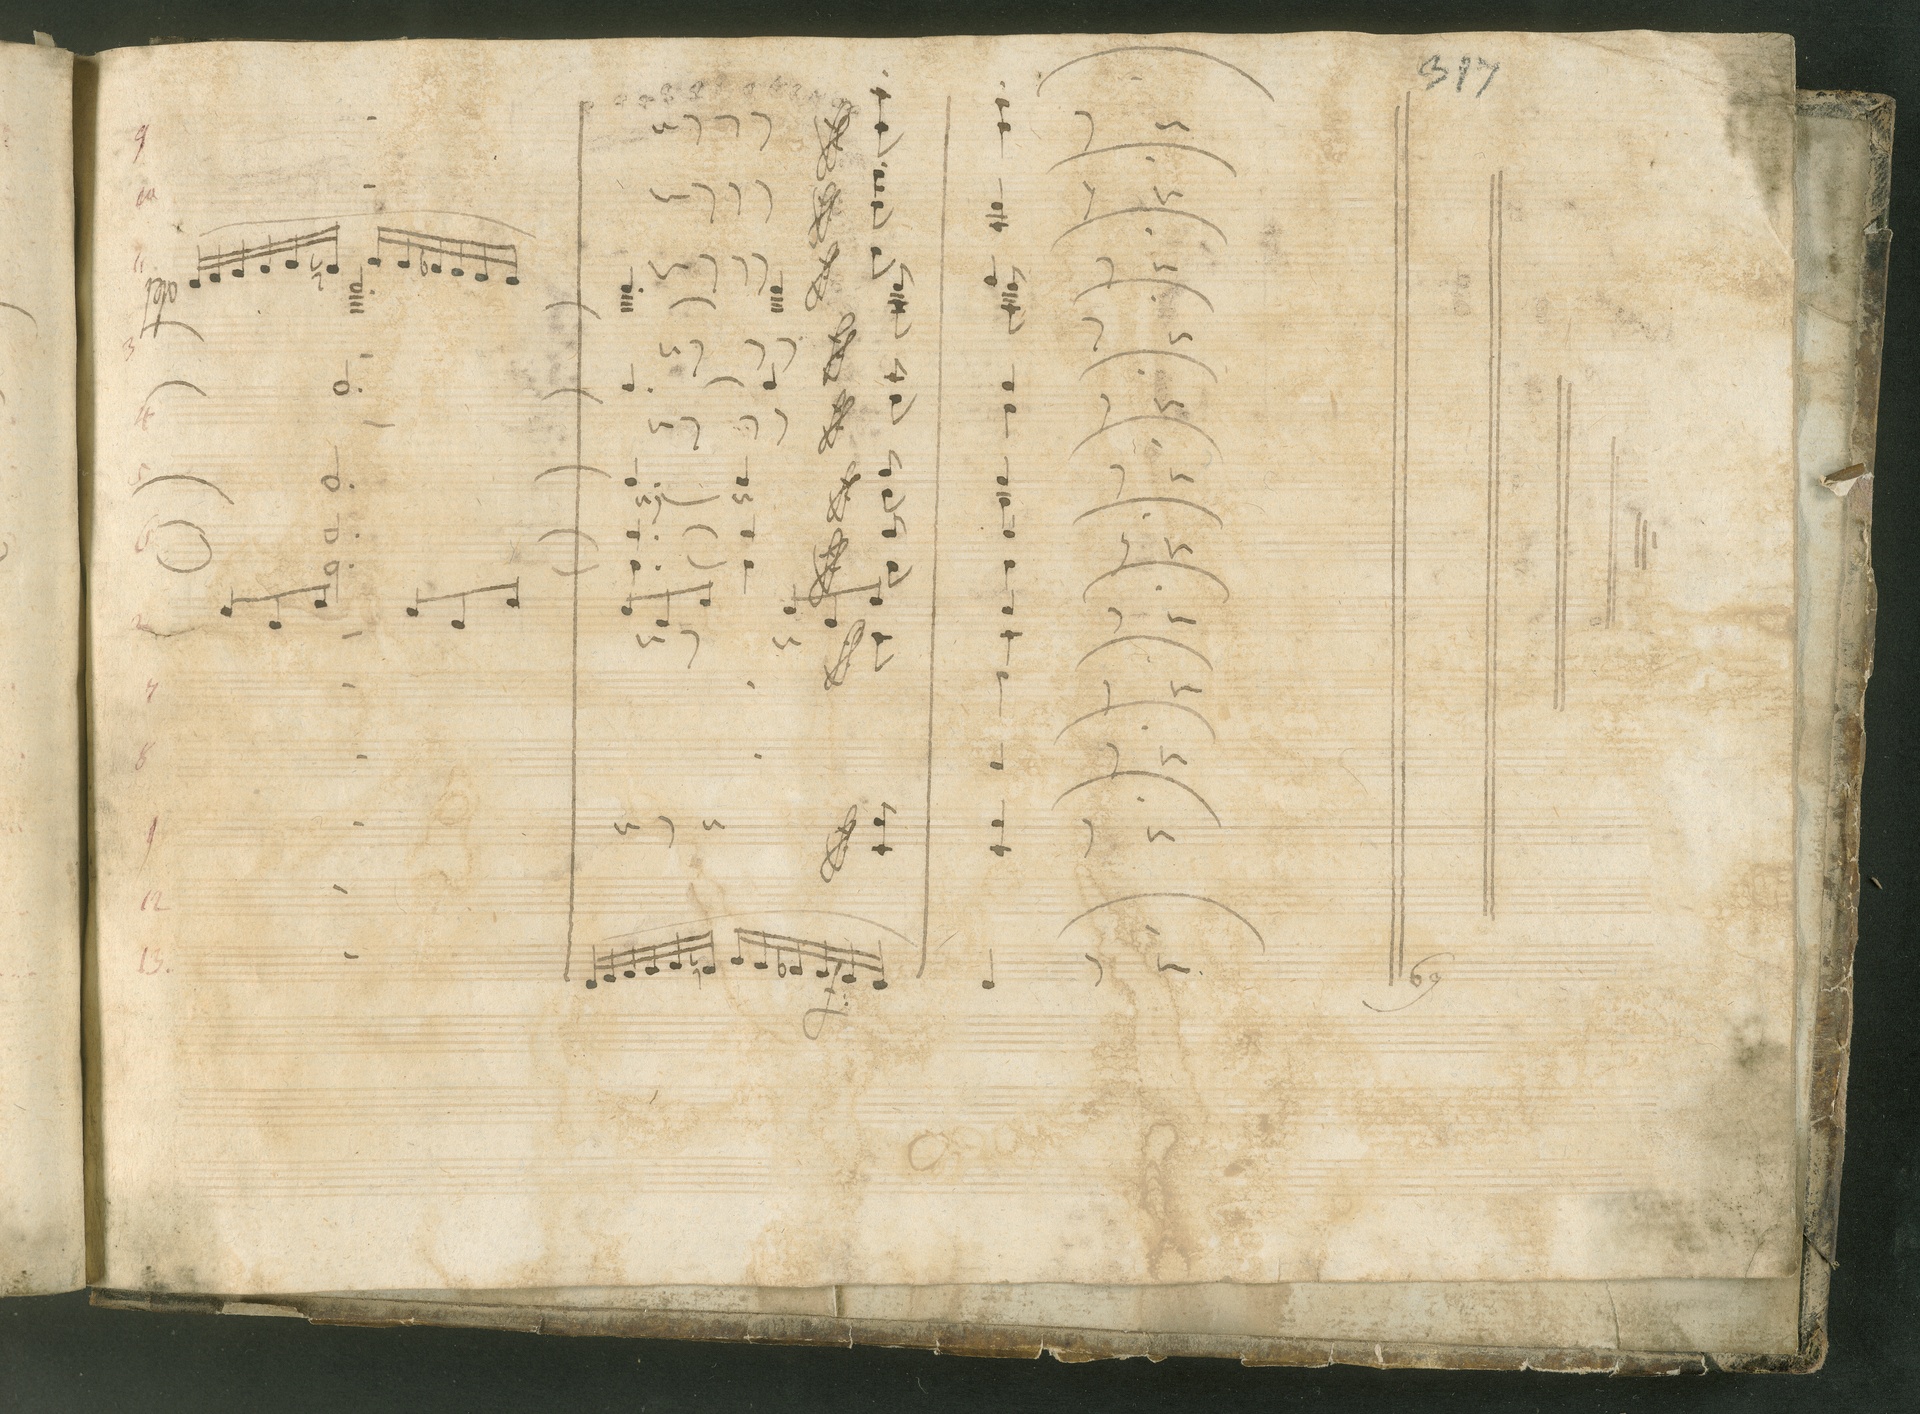 317
9
10
11
3
4
5
6
2
7
8
1
12
13.